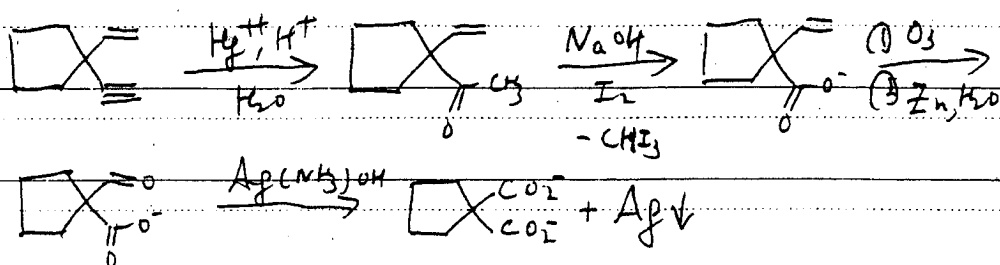 Hg⁺⁺, H⁺
H₂O
CH₃
O
NaOH
I₂
- CHI₃
O⁻
O
① O₃
② Zn, H₂O
O
O⁻
O
Ag(NH₃)OH
CO₂⁻
CO₂⁻
+ Ag↓